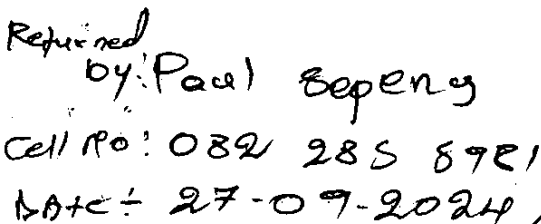 Returned
by: Paul Sepeng
Cell No: 082 285 8981
DATE: 27-09-2024